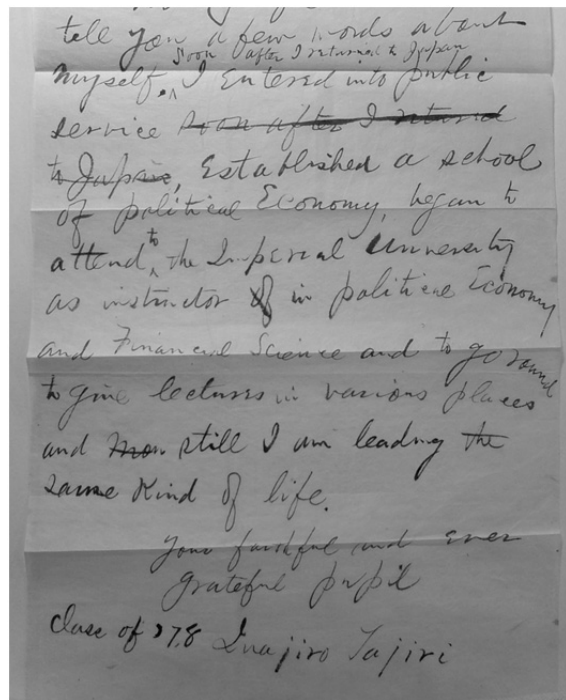 tell you a few words about
Soon after I returned to Japan
myself. ^ I Entered into public
service soon after I returned
to Japan, Established a school
of political Economy, began to
to
attend ^ the Imperial University
as instructor of in political Economy
and Financial Science and to go round
to give lectures in various places
and still I am leading the
same Kind of life.
your faithful and ever
grateful pupil
Class of '78 Inajiro Tajiri